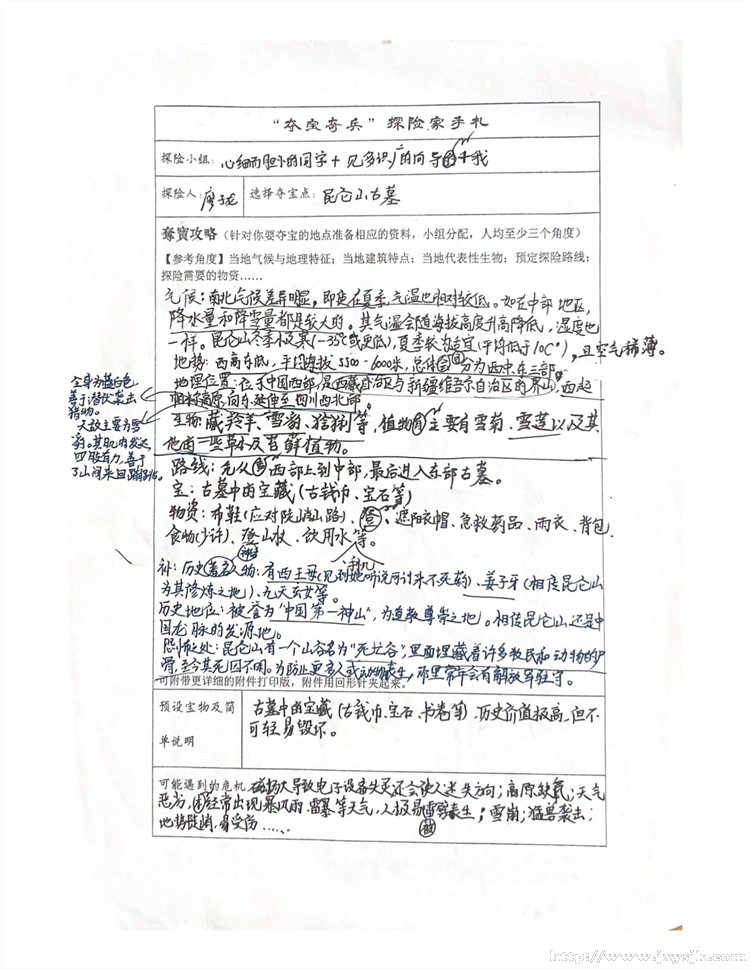 “夺宝奇兵”探险家手札
探险小组：心细而胆大的同学+见多识广的向导+我
探险人：廖子龙 选择夺宝点：昆仑山古墓
夺宝攻略（针对你要夺宝的地点准备相应的资料，小组分配，人均至少三个角度）
【参考角度】当地气候与地理特征；当地建筑特点；当地代表性生物；预定探险路线；
探险需要的物资……
气候：南北气候差异明显，即使在夏季，气温也相对较低。如在中部地区，
降水量和降雪量都是较大的。其气温会随海拔高度升高降低，湿度也
一样。昆仑山冬季极寒(-35℃或更低)，夏季较为适宜(平均低于10C°)，且空气稀薄。
地势：西高东低，平均海拔5500-6000米，总体分为西中东三部。
地理位置：在中国西部，是西藏自治区与新疆维吾尔自治区的界山，西起
帕米尔高原，向东延伸至四川西北部
全身为蓝白色，
善于潜伏袭击
猎物。
天敌主要为雪
豹。其肌肉发达，
四肢有力，善于
于山间来回蹦跶。
生物：藏羚羊、雪豹、猞猁等，植物主要有雪菊、雪莲以及其
他由一些草本及苔藓植物。
路线：先从西部上到中部，最后进入东部古墓。
宝：古墓中的宝藏(古钱币、宝石等)
物资：布鞋(应对陡峭山路)、遮阳衣帽、急救药品、雨衣、背包
食物(少许)、登山杖、饮用水等。
手机
神话
补：历史著名人物：有西王母(见到她听说可讨来不死药)、姜子牙(相传昆仑山
为其修炼之地)、九天玄女等。
历史地位：被誉为“中国第一神山”，为道教尊崇之地。相传昆仑山还是中
国龙脉的发源地。
恐怖之处：昆仑山有一个山谷名为“死亡谷”，里面埋藏着许多牧民和动物的尸
骨，至今其死因不明。为防止更多人或动物丧生，那里常年会有解放军驻守。
可附带更详细的附件打印版，附件用回形针夹起来。
预设宝物及简
单说明
古墓中的宝藏(古钱币、宝石、书卷等)，历史价值极高，但不
可轻易毁坏。
可能遇到的危机 磁场大导致电子设备失灵还会使人迷失方向；高原缺氧；天气
恶劣，经常出现暴风雨、雷暴等天气，人极易雷劈丧生；雪崩；猛兽袭击；
被
地势陡峭，易受伤……
http://www.jxysjk.com